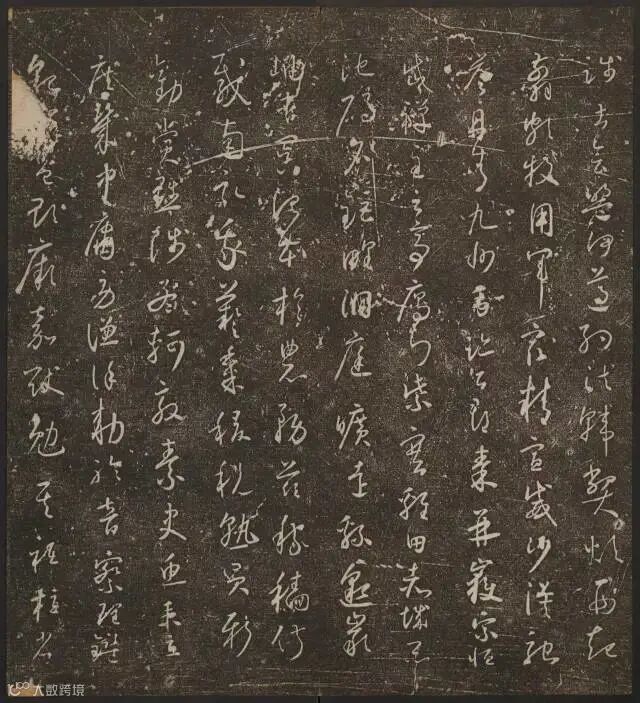 踐土會盟何遵約法韓弊煩刑起
翦頗牧用軍最精宣威沙漠馳
譽丹青九州禹跡百郡秦并嶽宗恒
岱禪主云亭雁門紫塞雞田赤城昆
池碣石鉅野洞庭曠遠綿邈巖
岫杳冥治本於農務茲稼穡俶
載南畝我藝黍稷稅熟貢新
勸賞黜陟孟軻敦素史魚秉直
庶幾中庸勞謙謹勅聆音察理鑑
貌色貽厥嘉猷勉其祗植省
大数跨境